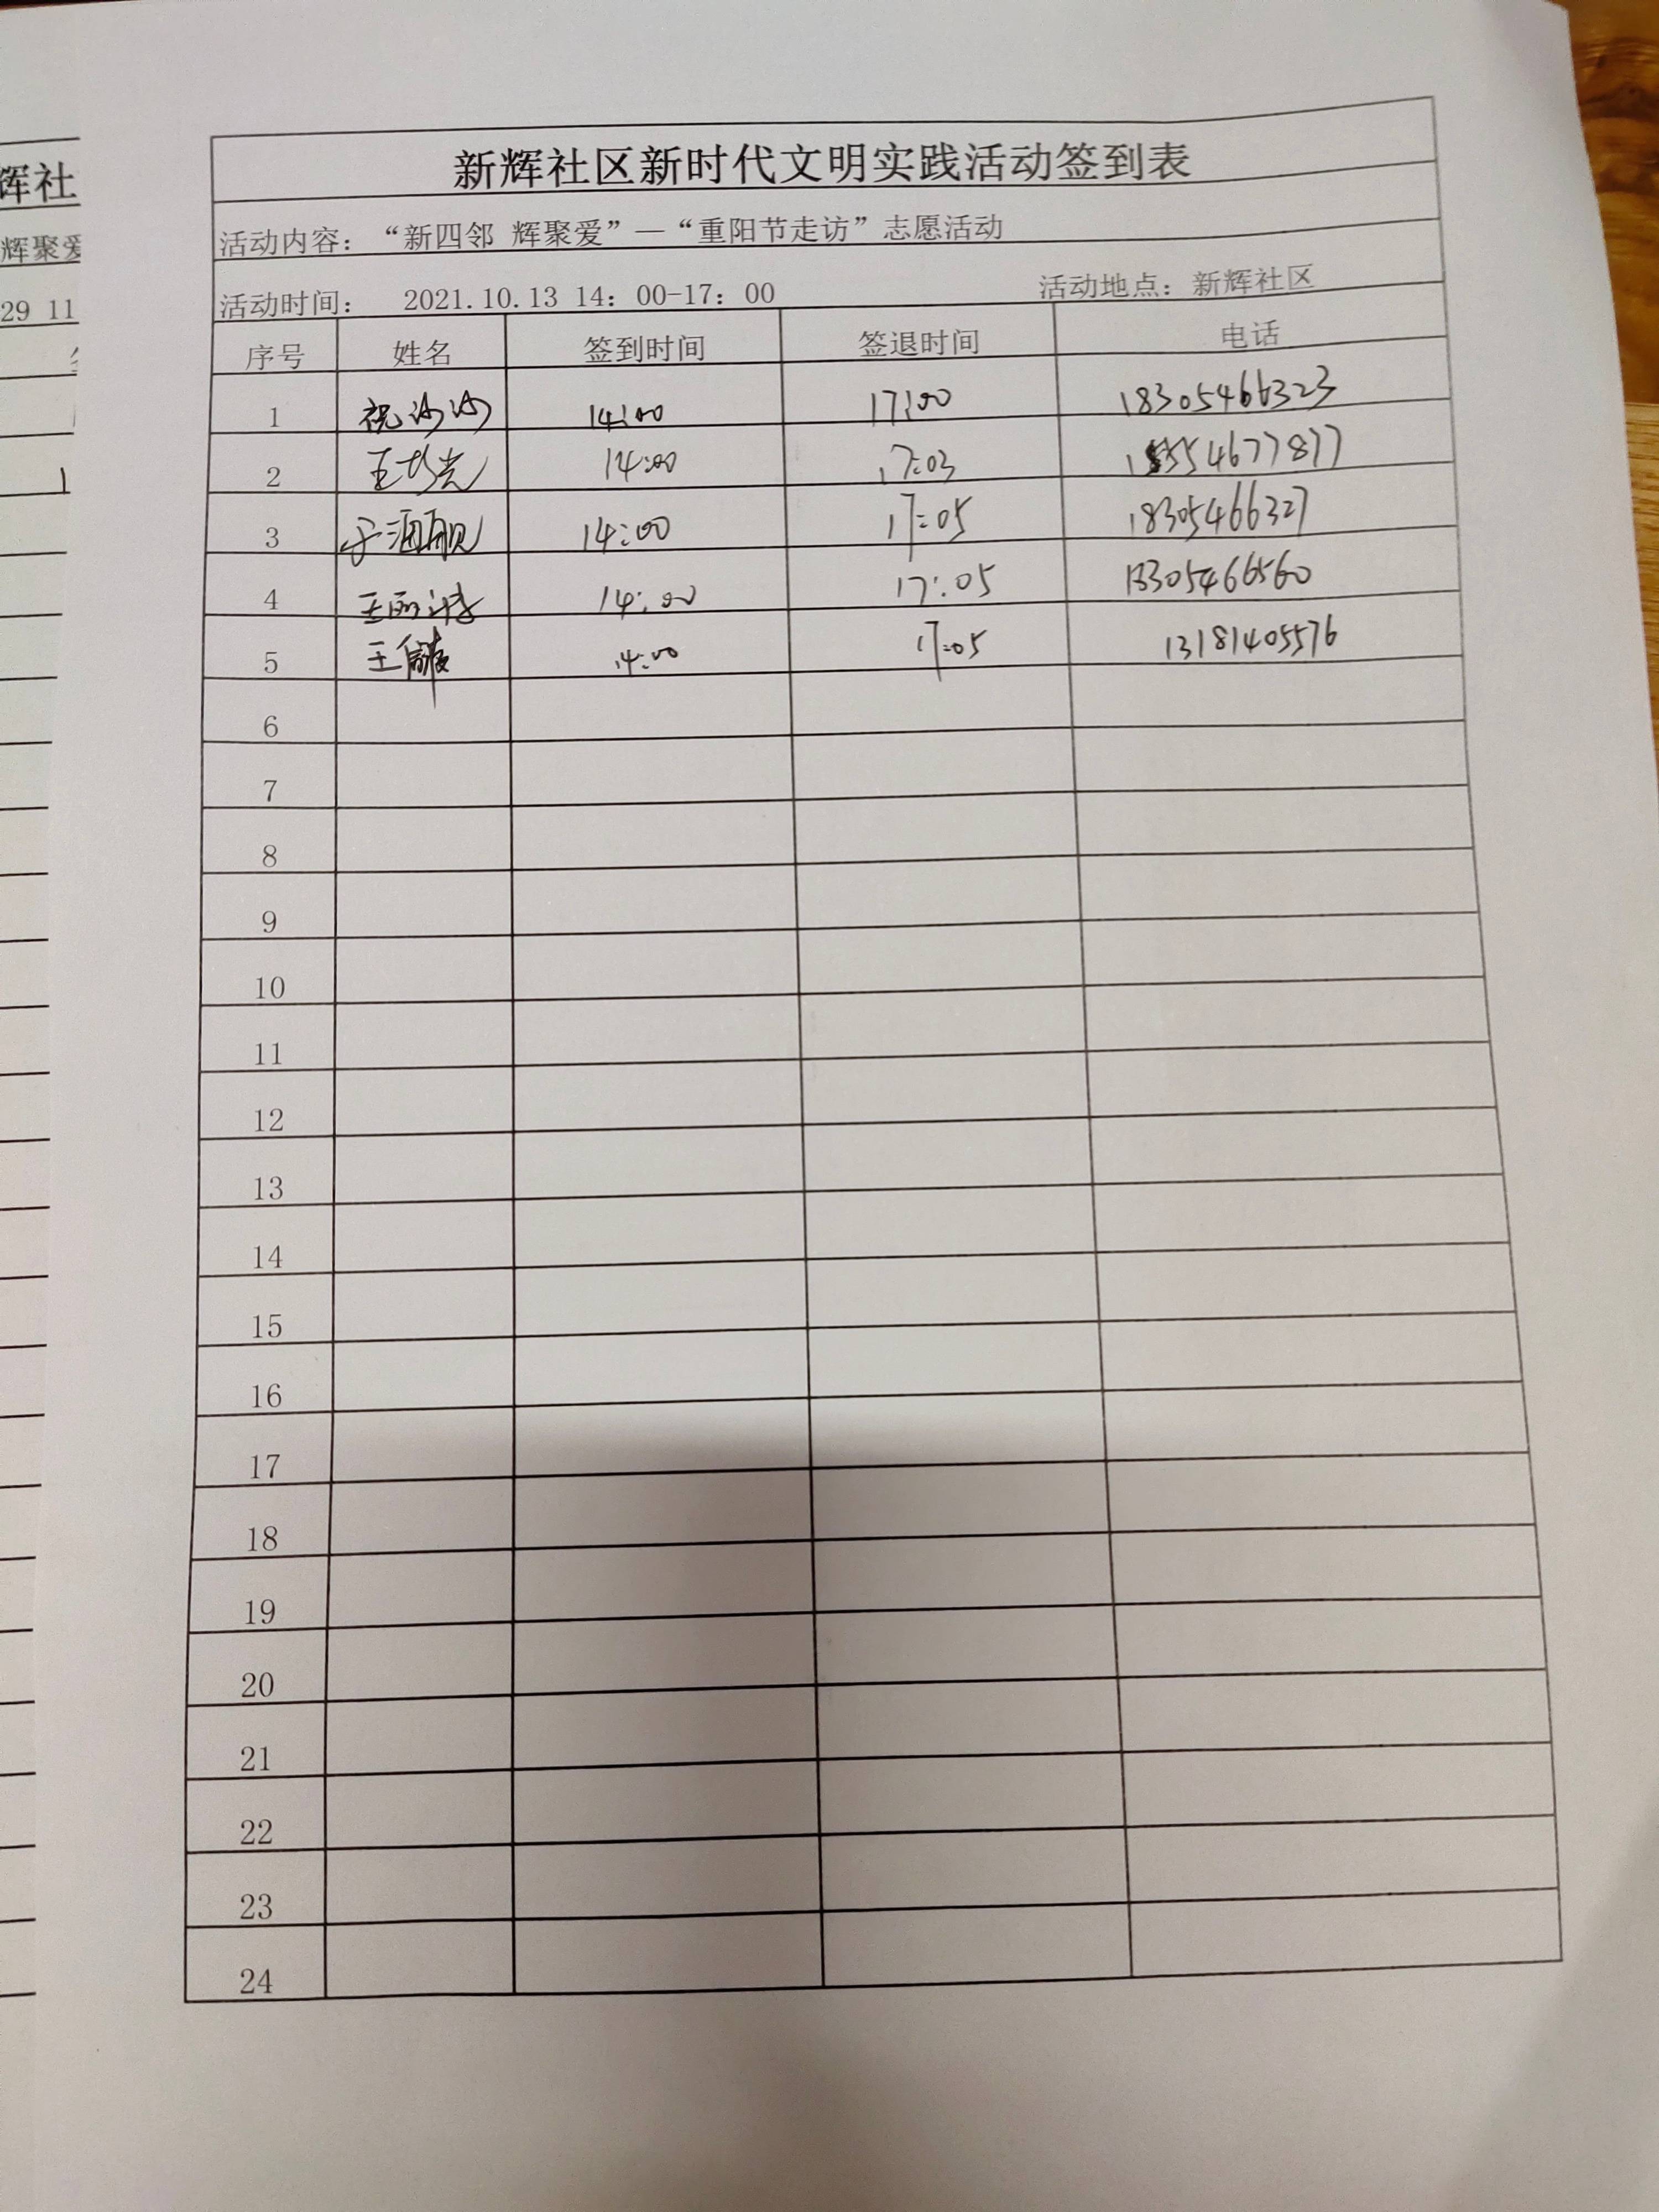 新辉社区新时代文明实践活动签到表
活动内容：“新四邻 辉聚爱”—“重阳节走访”志愿活动
活动时间： 2021.10.13 14：00-17：00 活动地点：新辉社区
序号 姓名 签到时间 签退时间 电话
1 祝沙沙 14:00 17:00 18305466323
2 14:00 17:03 15554677877
3 14:00 17:05 18305466327
4 14:00 17:05 13305466560
5 14:00 17:05 13181405576
6
7
8
9
10
11
12
13
14
15
16
17
18
19
20
21
22
23
24
辉社
辉聚爱
29 11